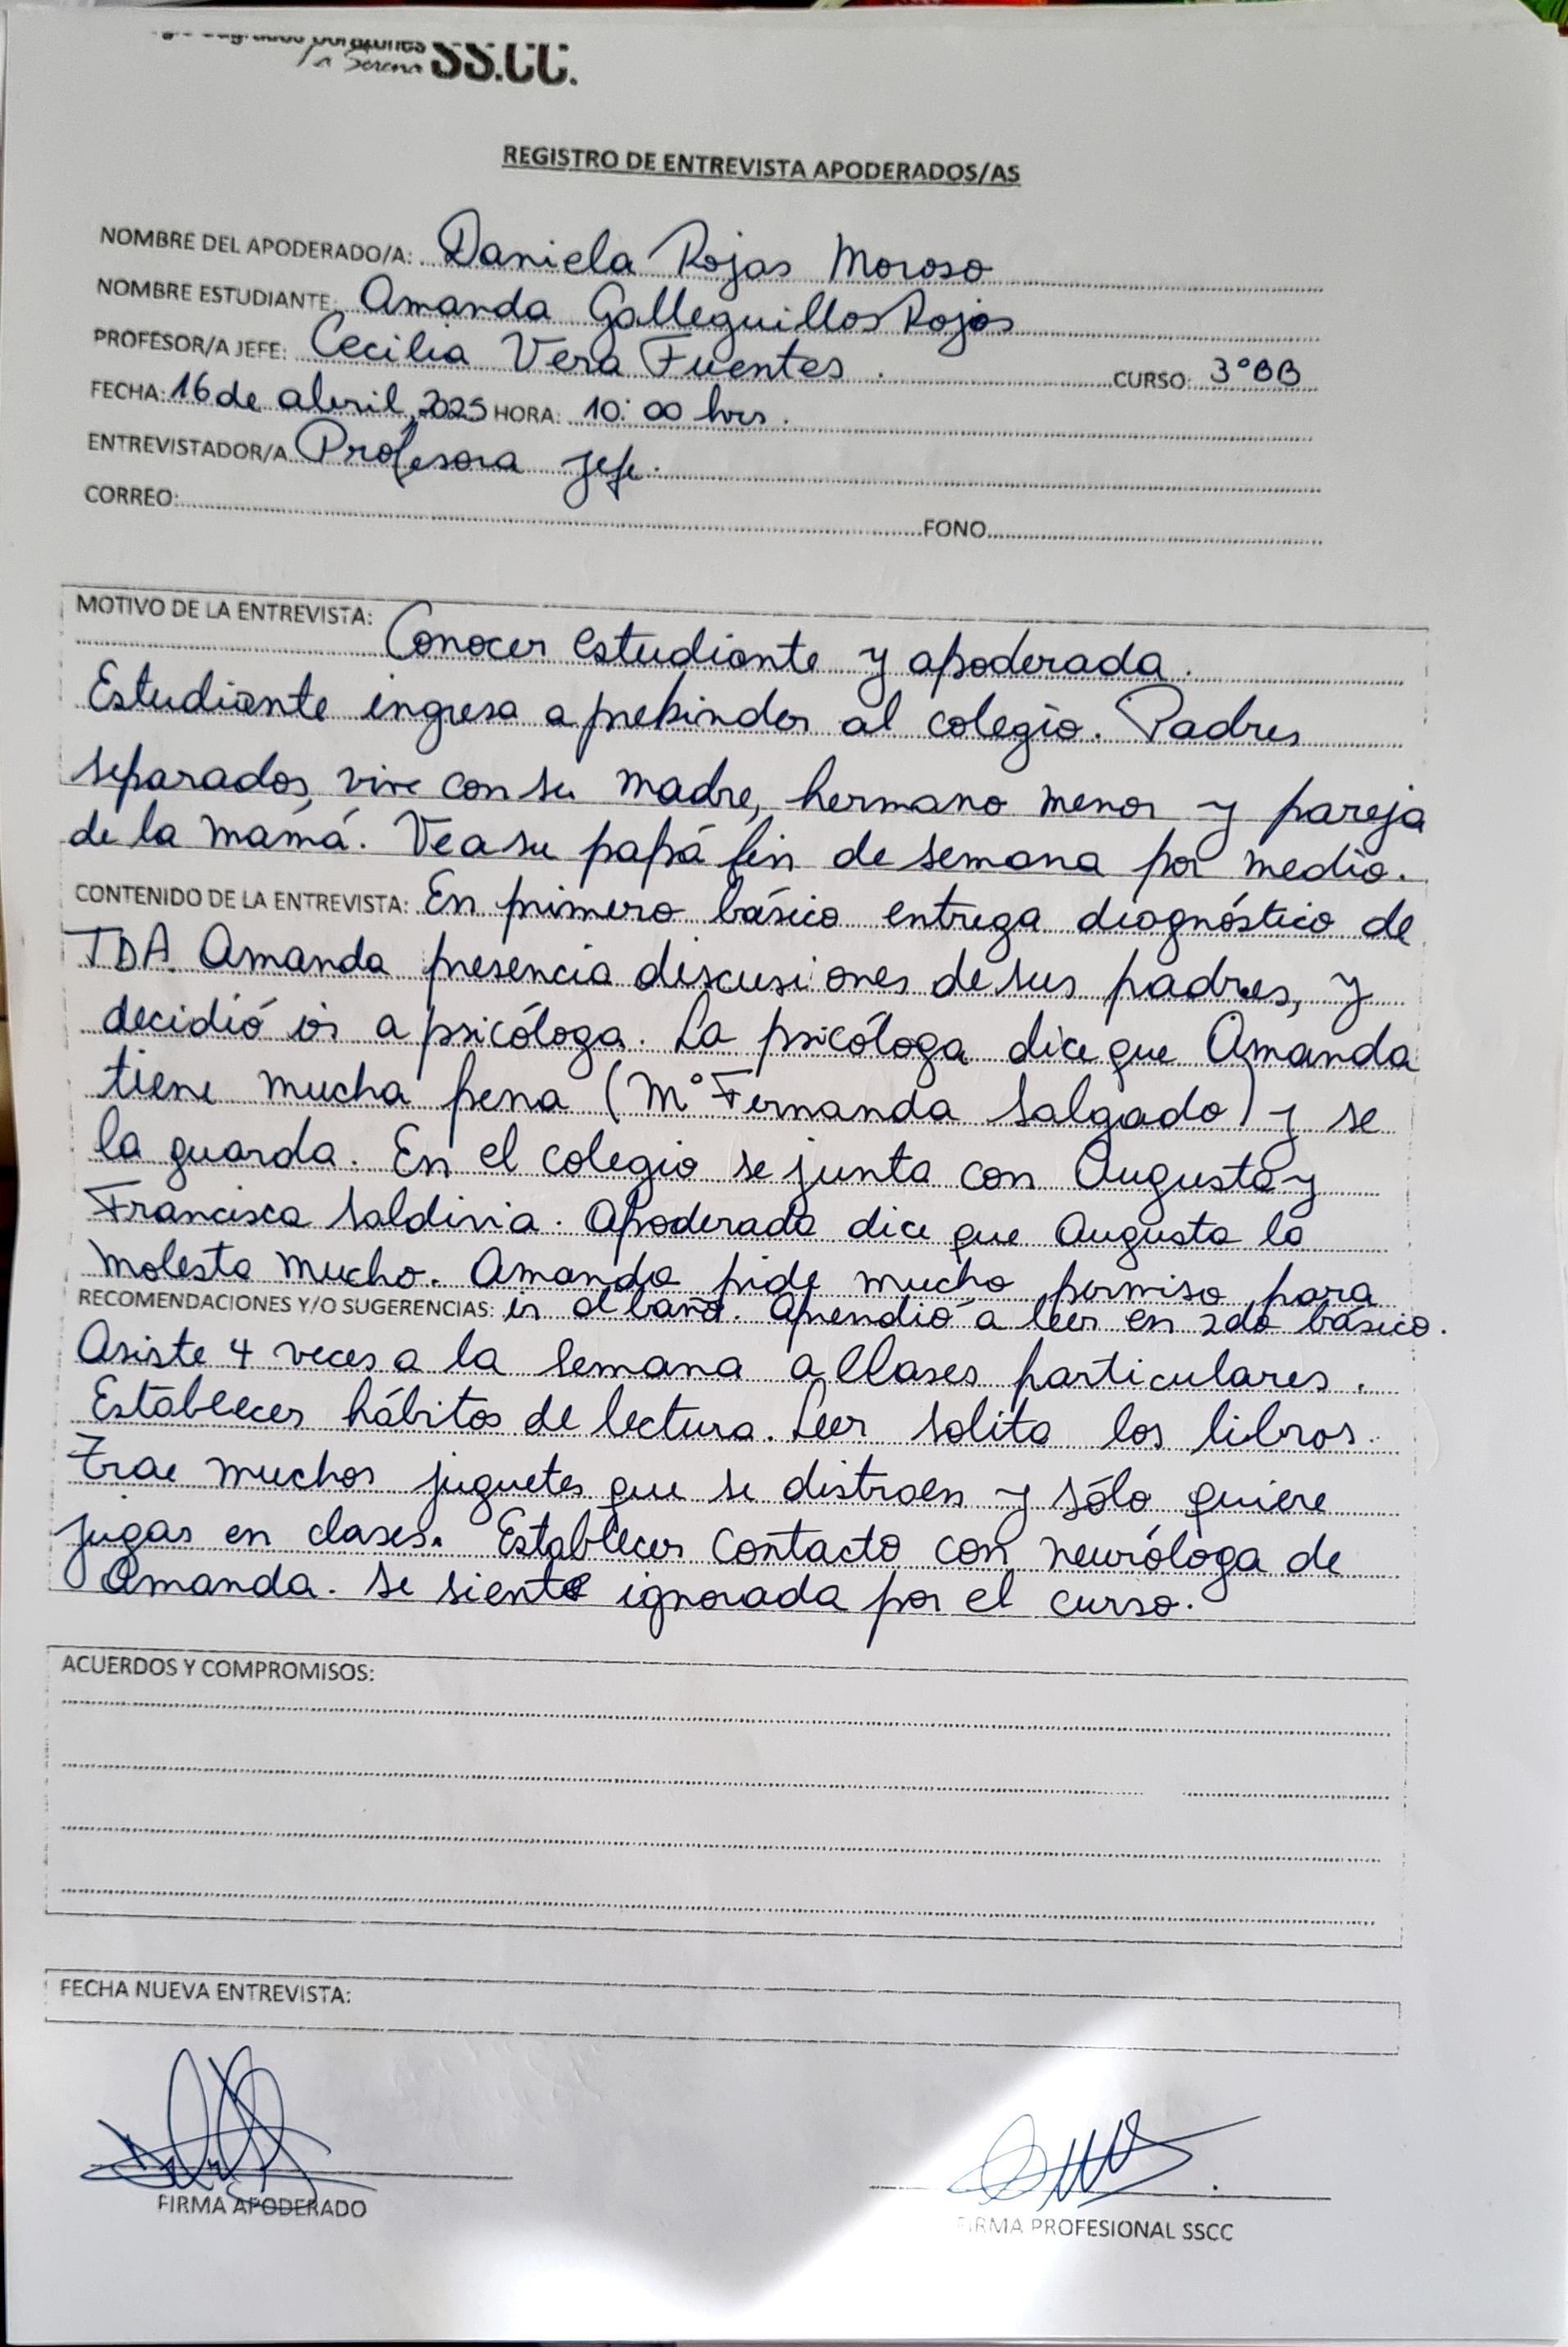 Sagrados Corazones
La Serena SS.CC.
REGISTRO DE ENTREVISTA APODERADOS/AS
NOMBRE DEL APODERADO/A: Daniela Rojas Moroso
NOMBRE ESTUDIANTE: Amanda Galleguillos Rojas
PROFESOR/A JEFE: Cecilia Vera Fuentes. CURSO: 3°BB
FECHA: 16 de abril, 2025 HORA: 10:00 hrs.
ENTREVISTADOR/A Profesora jefe.
CORREO: FONO
MOTIVO DE LA ENTREVISTA:
Conocer estudiante y apoderada.
Estudiante ingresa a prekinder al colegio. Padres
separados, vive con su madre, hermano menor y pareja
de la mamá. Ve a su papá fin de semana por medio.
CONTENIDO DE LA ENTREVISTA: En primero básico entrega diagnóstico de
TDA. Amanda presencia discusiones de sus padres, y
decidió ir a psicóloga. La psicóloga dice que Amanda
tiene mucha pena (M° Fernanda Salgado) y se
la guarda. En el colegio se junta con Augusta y
Francisca Saldivia. Apoderada dice que Augusta la
molesta mucho. Amanda pide mucho permiso para
RECOMENDACIONES Y/O SUGERENCIAS: ir al baño. Aprendió a leer en 2do básico.
Asiste 4 veces a la semana a Clases particulares.
Establecer hábitos de lectura. Leer solita los libros.
Trae muchos juguetes que se distraen y sólo quiere
jugar en clases. Establecer contacto con neuróloga de
Amanda. Se siente ignorada por el curso.
ACUERDOS Y COMPROMISOS:
FECHA NUEVA ENTREVISTA:
FIRMA APODERADO
FIRMA PROFESIONAL SSCC